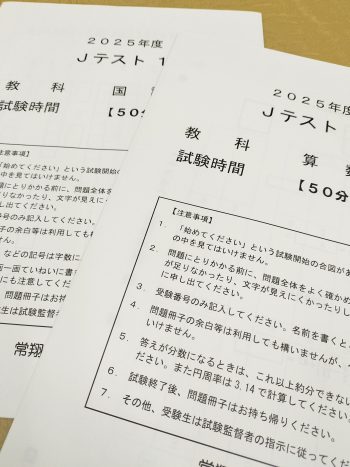 2025年度
Jテスト 1
教 科 国
試験時間 【50分
注意事項】
「始めてください」という試験開始の
の中を見てはいけません。
題にとりかかる前に、問題全体を
足りなかったり、文字が見えにく
し出てください。
番号のみ記入してください。
の余白等は利用しても構
などの記号は字数に
画一画ていねいに書
にも注意してくだ
問題冊子はお持
受験生は試験監督
常翔
2025年度
Jテスト
教 科 算 数
試験時間 【50分
【注意事項】
1. 「始めてください」という試験開始の合図があ
の中を見てはいけません。
2. 問題にとりかかる前に、問題全体をよく確かめ
が足りなかったり、文字が見えにくかったりし
に申し出てください。
3. 受験番号のみ記入してください。名前を書くと
4. 問題冊子の余白等は利用しても構いませんが、
いけません。
5. 答えが分数になるときは、これ以上約分できない
ださい。また円周率は3.14で計算してください。
6. 試験終了後、問題冊子はお持ち帰りください。
7. その他、受験生は試験監督者の指示に従ってくだ
常翔